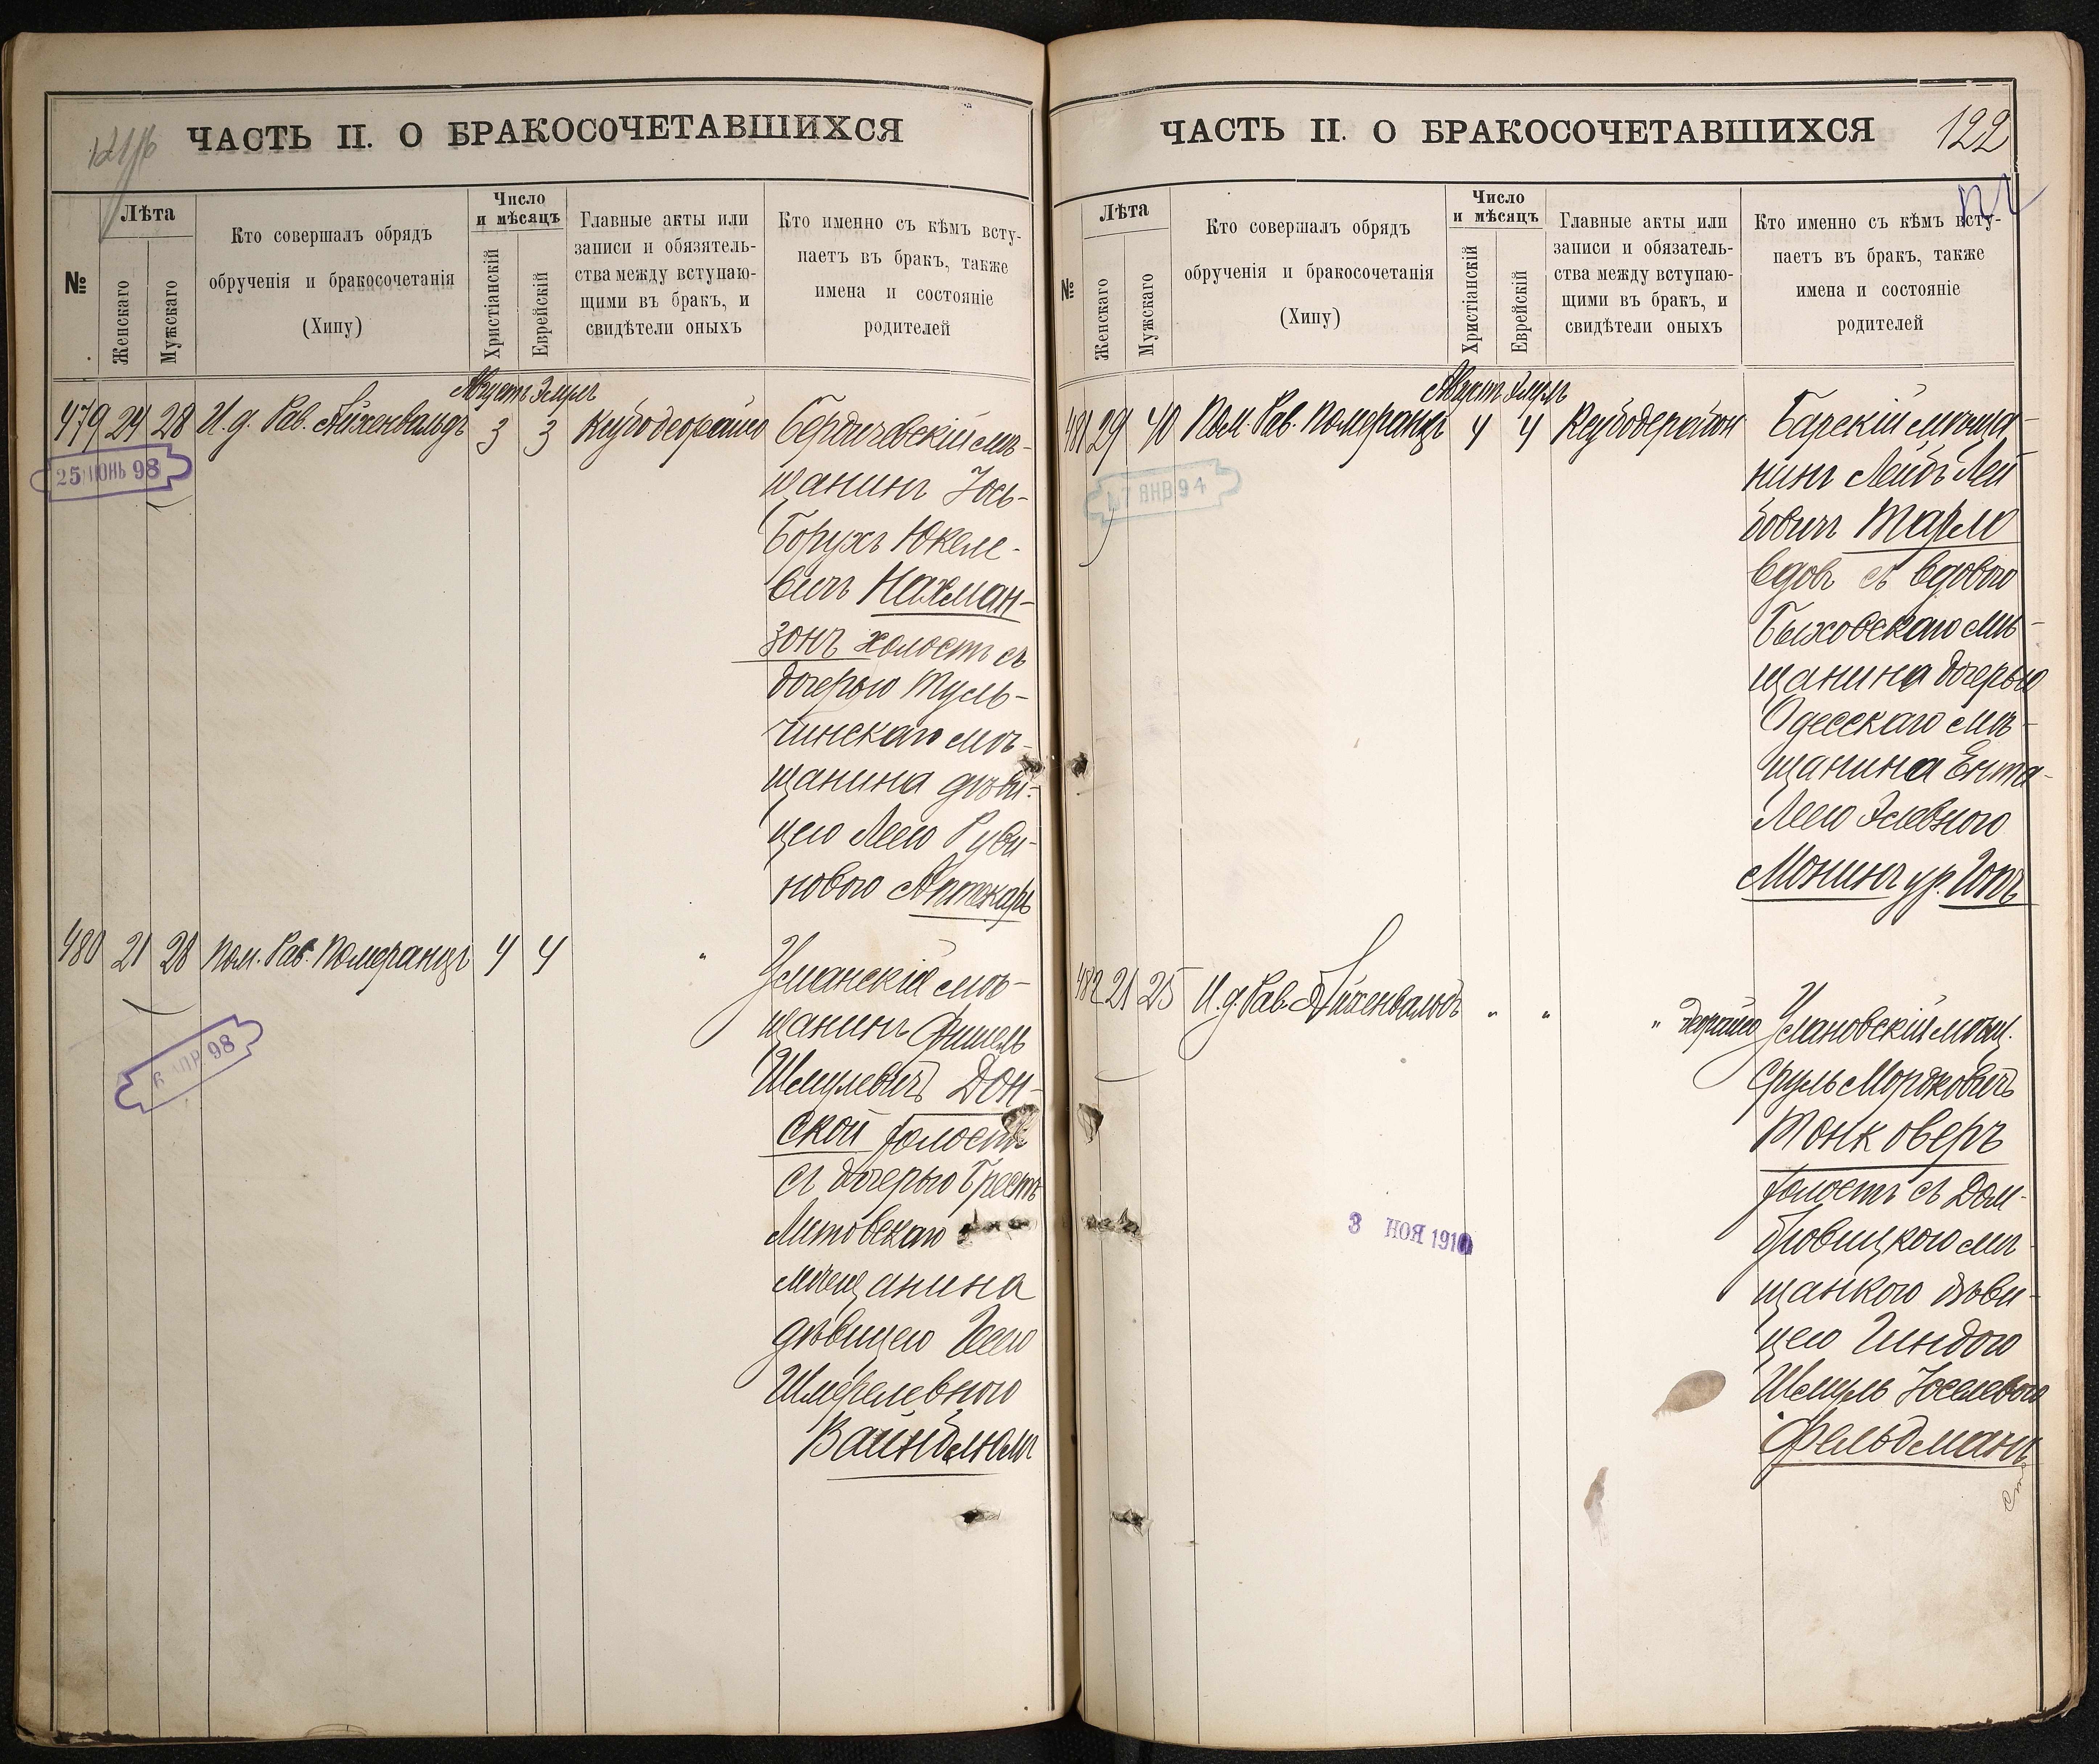 ЧАСТЬ II. О БРАКОСОЧЕТАВШИХСЯ
№
Лѣта
Женскаго
Мужскаго
Кто совершалъ обрядъ
обрученія и бракосочетанія
(Хипу)
Число
и мѣсяцъ
Христіанскій
Еврейскій
Главные акты или
записи и обязатель-
ства между вступаю-
щими въ бракъ, и
свидѣтели оныхъ
Кто именно съ кѣмъ всту-
паетъ въ бракъ, также
имена и состояніе
родителей
Августъ Элулъ
479 24 28 И.д. Рав. Айхенвальдъ 3 3 Бердичевскій мѣ-
25 ИЮНЬ 98
щанинъ Іось-
Борухъ Юкеле-
вичъ Нахман-
зонъ холостъ съ
дочерью Туль-
чинскаго мѣ-
щанина дѣви-
цею Леею Руви-
новою Аптекарь
480 21 28 Пом. Рав. Померанцъ 4 4 " Уманскій мѣ-
щанинъ Фишель
Шмулевичъ Дон-
ской холостъ
6 АПР 98
съ дочерью Брестъ
Литовскаго
мѣщанина
дѣвицею
Шмерелевною
Вайнблюмъ
ЧАСТЬ II. О БРАКОСОЧЕТАВШИХСЯ
122
№
Лѣта
Женскаго
Мужскаго
Кто совершалъ обрядъ
обрученія и бракосочетанія
(Хипу)
Число
и мѣсяцъ
Христіанскій
Еврейскій
Главные акты или
записи и обязатель-
ства между вступаю-
щими въ бракъ, и
свидѣтели оныхъ
Кто именно съ кѣмъ всту-
паетъ въ бракъ, также
имена и состояніе
родителей
Августъ Элулъ
481 29 40 Пом. Рав. Померанцъ 4 4 Барскій мѣща-
нинъ Лейбъ Лей
7 ЯНВ 94
бовичъ Тарло
вдовъ съ вдовою
Быховскаго мѣ-
щанина дочерью
Одесскаго мѣ-
щанина Ента-
Леею
Монинъ ур.
482 21 25 И.д. Рав. Айхенвальдъ " " " Улановскій мѣщ.
Сруль Мордковичъ
Тонконверъ
холостъ съ Дом-
бровицкою мѣ-
3 НОЯ 1910
щанкою дѣви-
цею Гиндою
Шмуль Іоселевою
Фельдманъ